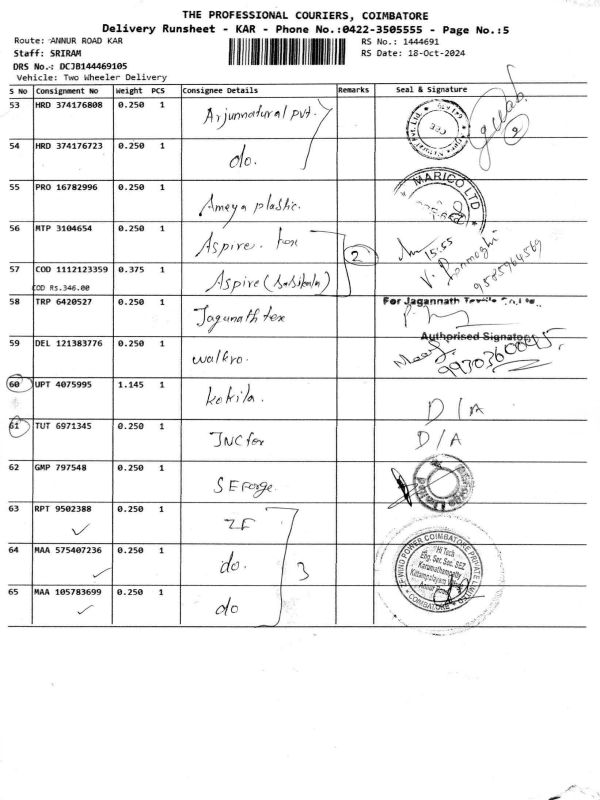 THE PROFESSIONAL COURIERS, COIMBATORE
Delivery Runsheet - KAR - Phone No.:0422-3505555 - Page No.:5
Route: ANNUR ROAD KAR
RS No.: 1444691
Staff: SRIRAM
RS Date: 18-Oct-2024
DRS No.: DCJB144469105
Vehicle: Two Wheeler Delivery
S No Consignment No Weight PCS Consignee Details Remarks Seal & Signature
53 HRD 374176808 0.250 1 Arjunnatural pvt.
54 HRD 374176723 0.250 1 do.
55 PRO 16782996 0.250 1 Ameya plastic. MARICO LTD
56 MTP 3104654 0.250 1 Aspire. tex 2 15:55
57 COD 1112123359 0.375 1 Aspire (Sasikala) 9585964569
COD Rs.346.00
58 TRP 6420527 0.250 1 Jagunath tex For Jagannath
Authorised Signatory
59 DEL 121383776 0.250 1 walkro.
60 UPT 4075995 1.145 1 kokila. D/A
61 TUT 6971345 0.250 1 JNC for D/A
62 GMP 797548 0.250 1 SE Forge.
63 RPT 9502388 0.250 1 ZF
64 MAA 575407236 0.250 1 do. 3
65 MAA 105783699 0.250 1 do
WIND POWER COIMBATORE PRIVATE LIMITED
Hi Tech
Eng. Sec. Sec. SEZ
Karumathampatty
COIMBATORE